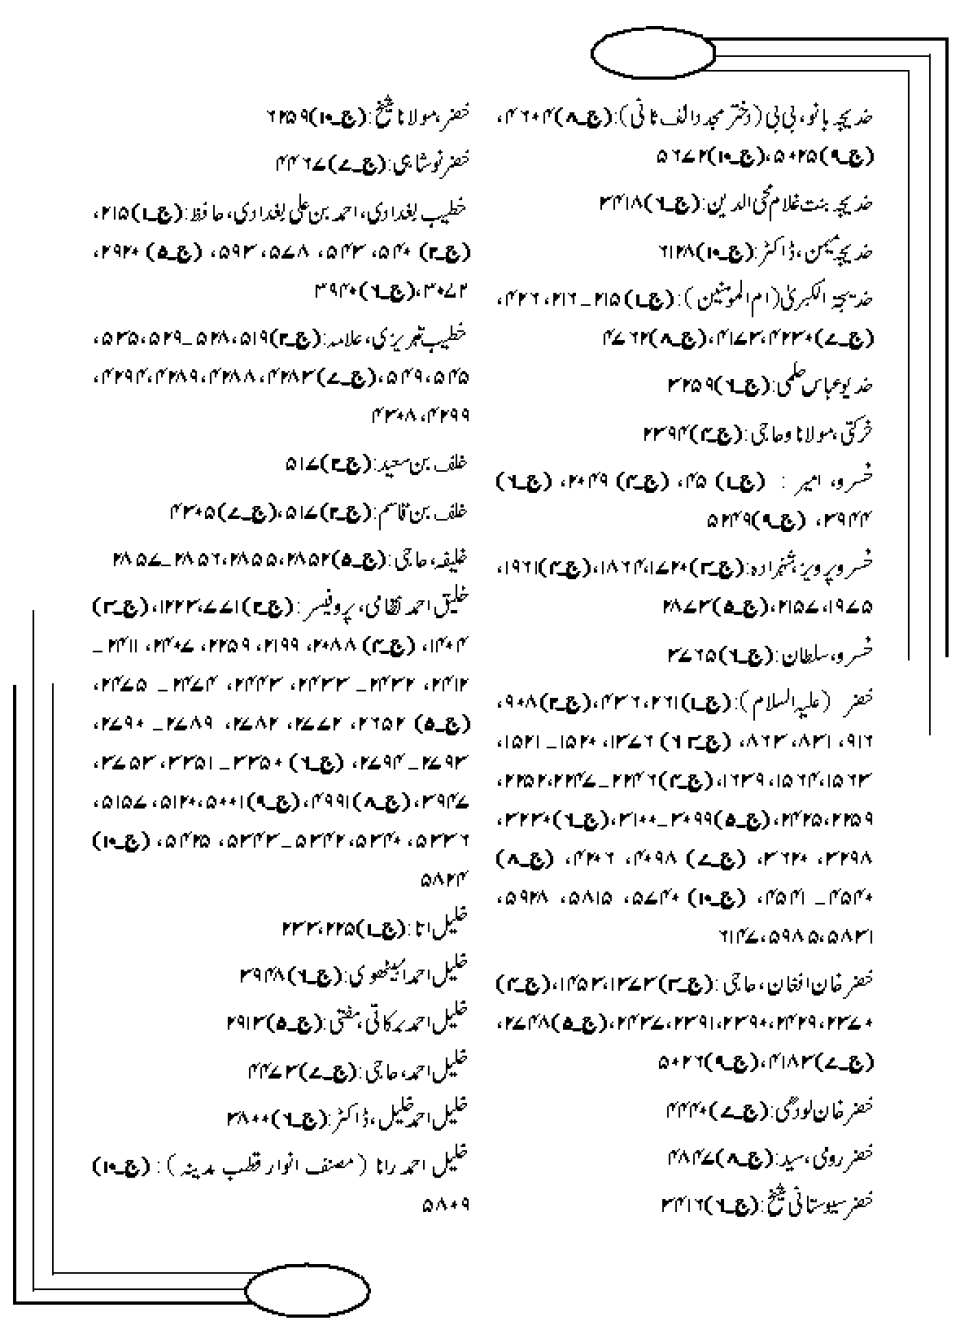 خدیجہ بانو، بی بی (دختر مجدد الف ثانی): (ج۔۸) ۴۰۴۶۰،
(ج۔۹) ۵۰۲۵، (ج۔۱۰) ۵۶۷۲
خدیجہ بنت غلام محی الدین: (ج۔۶) ۳۴۱۸
خدیجہ میمن، ڈاکٹر: (ج۔۱۰) ۶۱۲۸
خدیجۃ الکبریٰ (ام المومنین): (ج۔۱) ۲۱۵۔۲۱۶، ۴۲۶،
(ج۔۷) ۴۲۳۰، ۴۱۷۳، (ج۔۸) ۴۷۶۲
خدیو عباس حلمی: (ج۔۶) ۳۲۵۹
خرکی، مولانا و حاجی: (ج۔۴) ۲۳۹۴
خسرو، امیر : (ج۔۱) ۴۵، (ج۔۴) ۲۰۴۹، (ج۔۶)
۳۹۴۴، (ج۔۹) ۵۲۴۹
خسرو پرویز، شہزادہ: (ج۔۳) ۱۷۲۰، ۱۸۶۴، (ج۔۴) ۱۹۶۱،
۱۹۷۵، ۲۱۵۷، (ج۔۵) ۲۸۷۳
خسرو، سلطان: (ج۔۶) ۳۷۶۵
خضر (علیہ السلام): (ج۔۱) ۲۶۱، ۴۳۶، (ج۔۲) ۹۰۸،
۹۱۶، ۸۳۱، ۸۶۳، (ج۔۳) ۱۳۷۶، ۱۵۲۰۔۱۵۲۱،
۱۵۶۳، ۱۵۶۴، ۱۶۳۹، (ج۔۴) ۲۲۴۶۔۲۲۴۷، ۲۲۵۲،
۲۲۵۹، ۲۴۲۵، (ج۔۵) ۳۰۹۹۔۳۱۰۰، (ج۔۶) ۳۲۲۰،
۳۲۹۸، ۳۶۲۰، (ج۔۷) ۴۰۹۸، ۴۲۰۶، (ج۔۸)
۴۵۴۰۔ ۴۵۴۱، (ج۔۱۰) ۵۷۴۰، ۵۸۱۵، ۵۹۲۸،
۵۸۳۱، ۵۹۸۵، ۶۱۴۷
خضر خان افغان، حاجی: (ج۔۳) ۱۳۷۳، ۱۴۵۳، (ج۔۴)
۲۳۷۰، ۲۴۲۹، ۲۳۹۰، ۲۳۹۱، ۲۴۳۷، (ج۔۵) ۲۷۴۸،
(ج۔۷) ۴۱۸۳، (ج۔۹) ۵۰۲۶
خضر خان لودگی: (ج۔۷) ۴۴۴۰
خضر رومی، سید: (ج۔۸) ۴۸۴۷
خضر سیوستانی شیخ: (ج۔۶) ۳۴۱۶
خضر، مولانا شیخ: (ج۔۱۰) ۶۲۵۹
خضر نوشاہی: (ج۔۷) ۴۴۶۷
خطیب بغدادی، احمد بن علی بغدادی، حافظ: (ج۔۱) ۲۱۵،
(ج۔۲) ۵۴۰، ۵۴۳، ۵۷۸، ۵۹۳، (ج۔۵) ۲۹۲۰،
۳۰۷۲، (ج۔۶) ۳۹۴۰
خطیب تبریزی، علامہ: (ج۔۲) ۵۱۹، ۵۲۸۔۵۲۹، ۵۳۵،
۵۴۵، ۵۴۹، (ج۔۷) ۴۲۸۳، ۴۲۸۸، ۴۲۸۹، ۴۲۹۴،
۴۲۹۹، ۴۳۰۸
خلف بن سعید: (ج۔۲) ۵۱۷
خلف بن قاسم: (ج۔۲) ۵۱۷، (ج۔۷) ۴۳۰۵
خلیفہ، حاجی: (ج۔۵) ۲۸۵۲، ۲۸۵۵، ۲۸۵۶۔۲۸۵۷
خلیق احمد نظامی، پروفیسر: (ج۔۲) ۷۷۱، ۱۲۲۳، (ج۔۳)
۱۴۰۴، (ج۔۴) ۲۰۸۸، ۲۱۹۹، ۲۲۵۹، ۲۴۰۷، ۲۴۱۱۔
۲۴۱۲، ۲۴۳۲۔ ۲۴۳۳، ۲۴۴۳، ۲۴۷۴۔ ۲۴۷۵،
(ج۔۵) ۲۶۵۲، ۲۷۷۲، ۲۷۸۲، ۲۷۸۹۔ ۲۷۹۰،
۲۷۹۳۔۲۷۹۴، (ج۔۶) ۳۳۵۰۔۳۳۵۱، ۳۷۵۳،
۳۹۴۷، (ج۔۸) ۴۹۹۱، (ج۔۹) ۵۰۰۱، ۵۱۲۰، ۵۱۵۷،
۵۲۳۶، ۵۳۴۰، ۵۳۴۲۔۵۳۴۳، ۵۴۲۵، (ج۔۱۰)
۵۸۲۴
خلیل اتا: (ج۔۱) ۲۲۵، ۲۳۳
خلیل احمد انبیٹھوی: (ج۔۶) ۳۹۴۸
خلیل احمد برکاتی، مفتی: (ج۔۵) ۲۹۱۳
خلیل احمد، حاجی: (ج۔۷) ۴۴۷۳
خلیل احمد خلیل، ڈاکٹر: (ج۔۶) ۳۸۰۰
خلیل احمد رانا (مصنف انوار قطب مدینہ): (ج۔۱۰)
۵۸۰۹